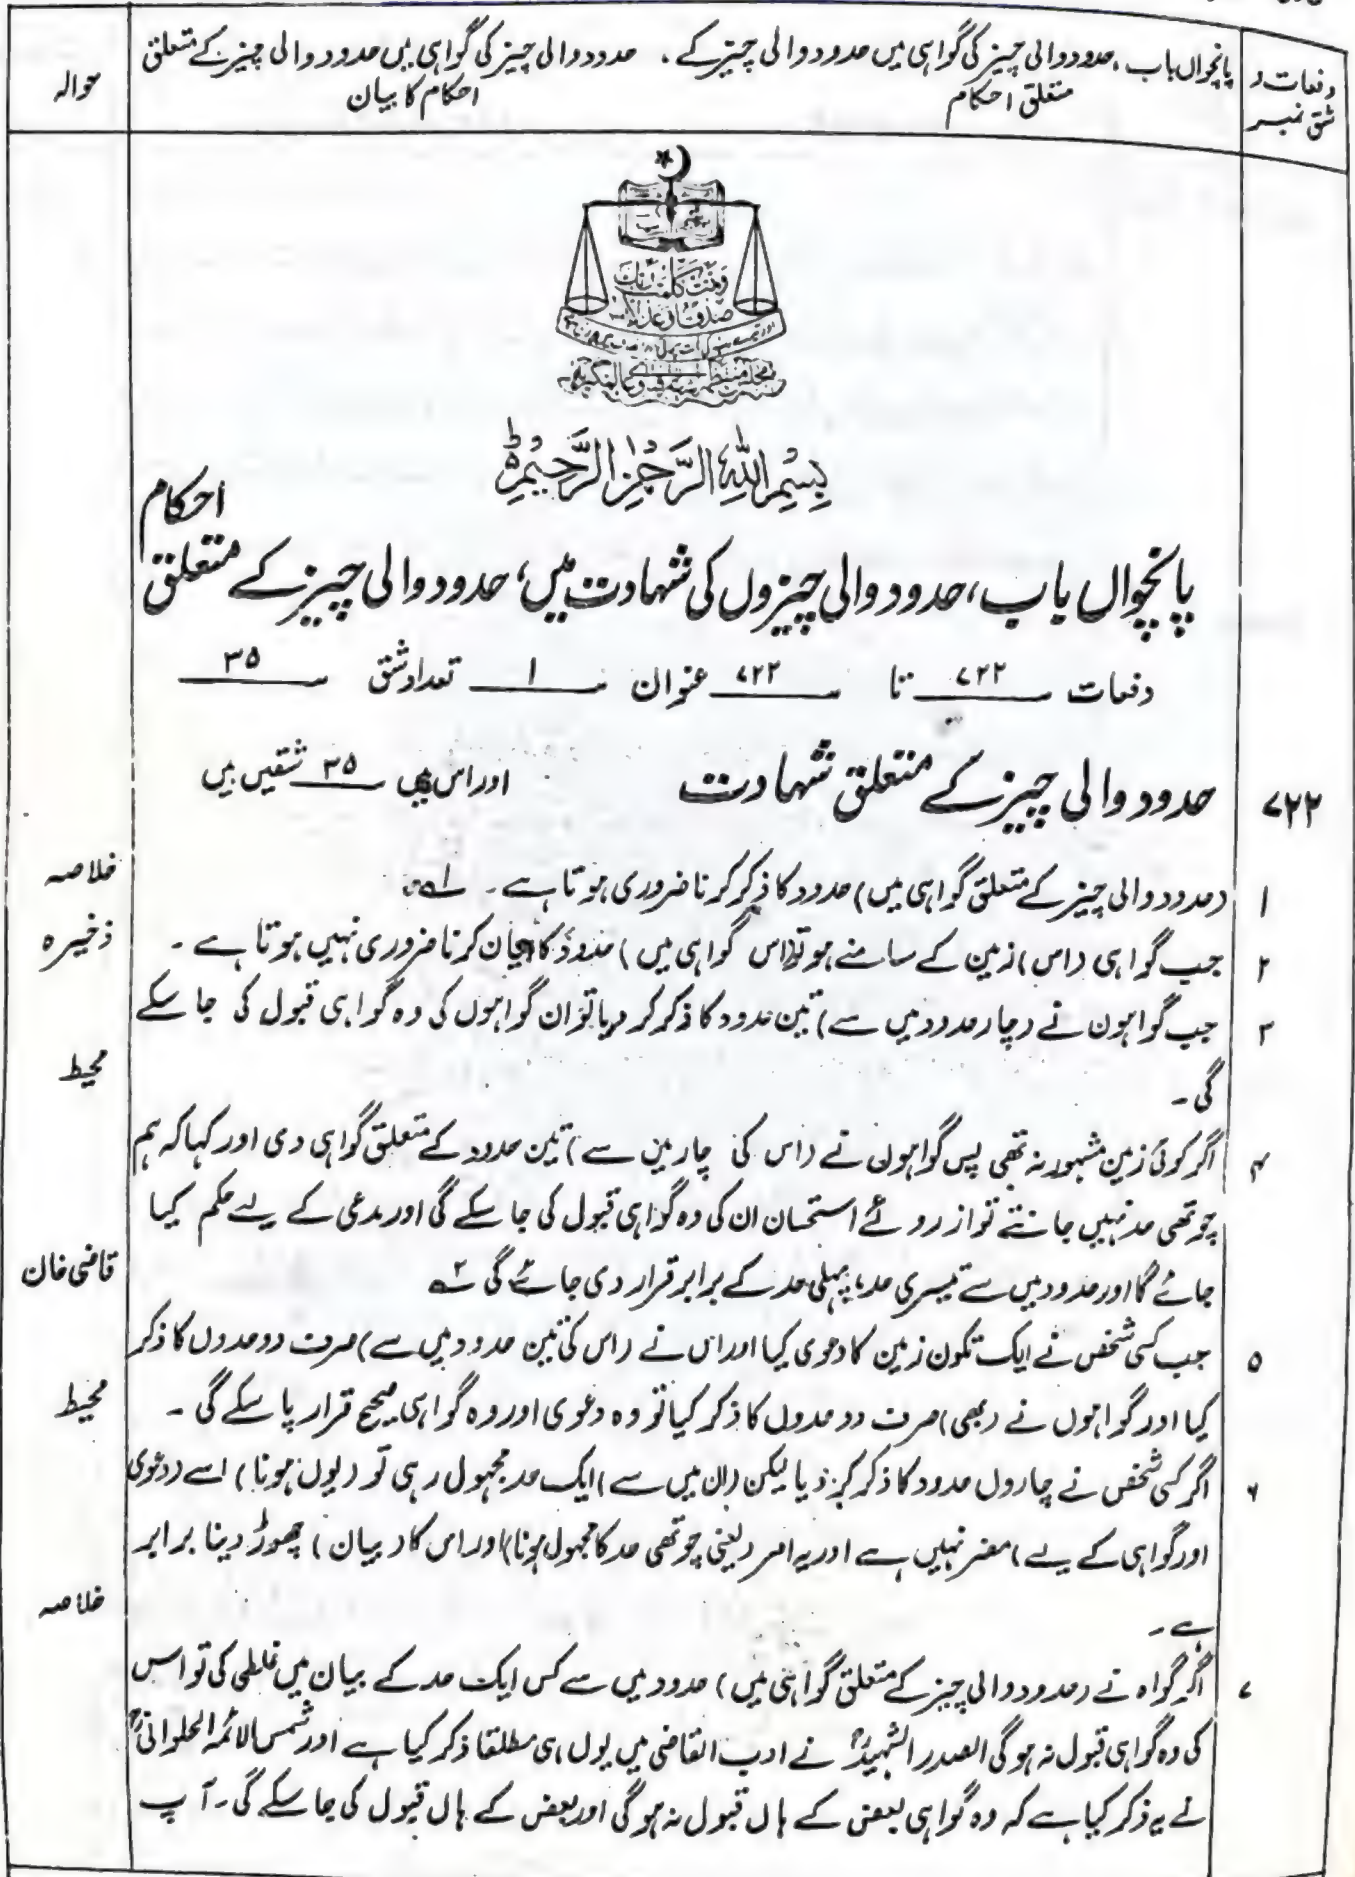 دفعات و
شق نمبر
پانچواں باب، حدود والی چیز کی گواہی میں حدود والی چیز کے
متعلق احکام
حدود والی چیز کی گواہی میں حدود والی چیز کے متعلق
احکام کا بیان
حوالہ
وتمت کلمت ربک
صدقا وعدلا
بِسْمِ اللهِ الرَّحْمٰنِ الرَّحِيْمِ
احکام
پانچواں باب، حدود والی چیزوں کی شہادت میں، حدود والی چیز کے متعلق
دفعات ۷۲۲ تا ۷۲۲ عنوان ۱ تعداد شق ۳۵
۷۲۲ حدود والی چیز کے متعلق شہادت اور اس میں ۳۵ شقیں ہیں
۱ (حدود والی چیز کے متعلق گواہی میں) حدود کا ذکر کرنا ضروری ہوتا ہے۔ ۱ے خلاصہ
۲ جب گواہی (اس) زمین کے سامنے ہو تو (اس گواہی میں) حدود کا بیان کرنا ضروری نہیں ہوتا ہے۔ ذخیرہ
۳ جب گواہوں نے (چار حدود میں سے) تین حدود کا ذکر کر دیا تو ان گواہوں کی وہ گواہی قبول کی جا سکے
گی۔ محیط
۴ اگر کوئی زمین مشہور نہ تھی پس گواہوں نے (اس کی چار میں سے) تین حدود کے متعلق گواہی دی اور کہا کہ ہم
چوتھی حد نہیں جانتے تو از روئے استحسان ان کی وہ گواہی قبول کی جا سکے گی اور مدعی کے لیے حکم کیا
جائے گا اور حدود میں سے تیسری حد، پہلی حد کے برابر قرار دی جائے گی ۲ے قاضی خان
۵ جب کسی شخص نے ایک تکون زمین کا دعوی کیا اور اس نے (اس کی تین حدود میں سے) صرف دو حدوں کا ذکر
کیا اور گواہوں نے (بھی) صرف دو حدوں کا ذکر کیا تو وہ دعوی اور وہ گواہی صحیح قرار پا سکے گی۔ محیط
۶ اگر کسی شخص نے چاروں حدود کا ذکر کر دیا لیکن (ان میں سے) ایک حد مجہول رہی تو (یوں ہونا) اسے (دعوی
اور گواہی کے لیے) مضر نہیں ہے اور یہ امر (یعنی چوتھی حد کا مجہول ہونا) اور اس کا (بیان) چھوڑ دینا برابر
ہے۔ خلاصہ
۷ اگر گواہ نے (حدود والی چیز کے متعلق گواہی میں) حدود میں سے کس ایک حد کے بیان میں غلطی کی تو اس
کی وہ گواہی قبول نہ ہوگی الصدر الشہیدؒ نے ادب القاضی میں یوں ہی مطلقا ذکر کیا ہے اور شمس الائمہ الحلوانیؒ
نے یہ ذکر کیا ہے کہ وہ گواہی بعض کے ہاں قبول نہ ہوگی اور بعض کے ہاں قبول کی جا سکے گی۔ آپ